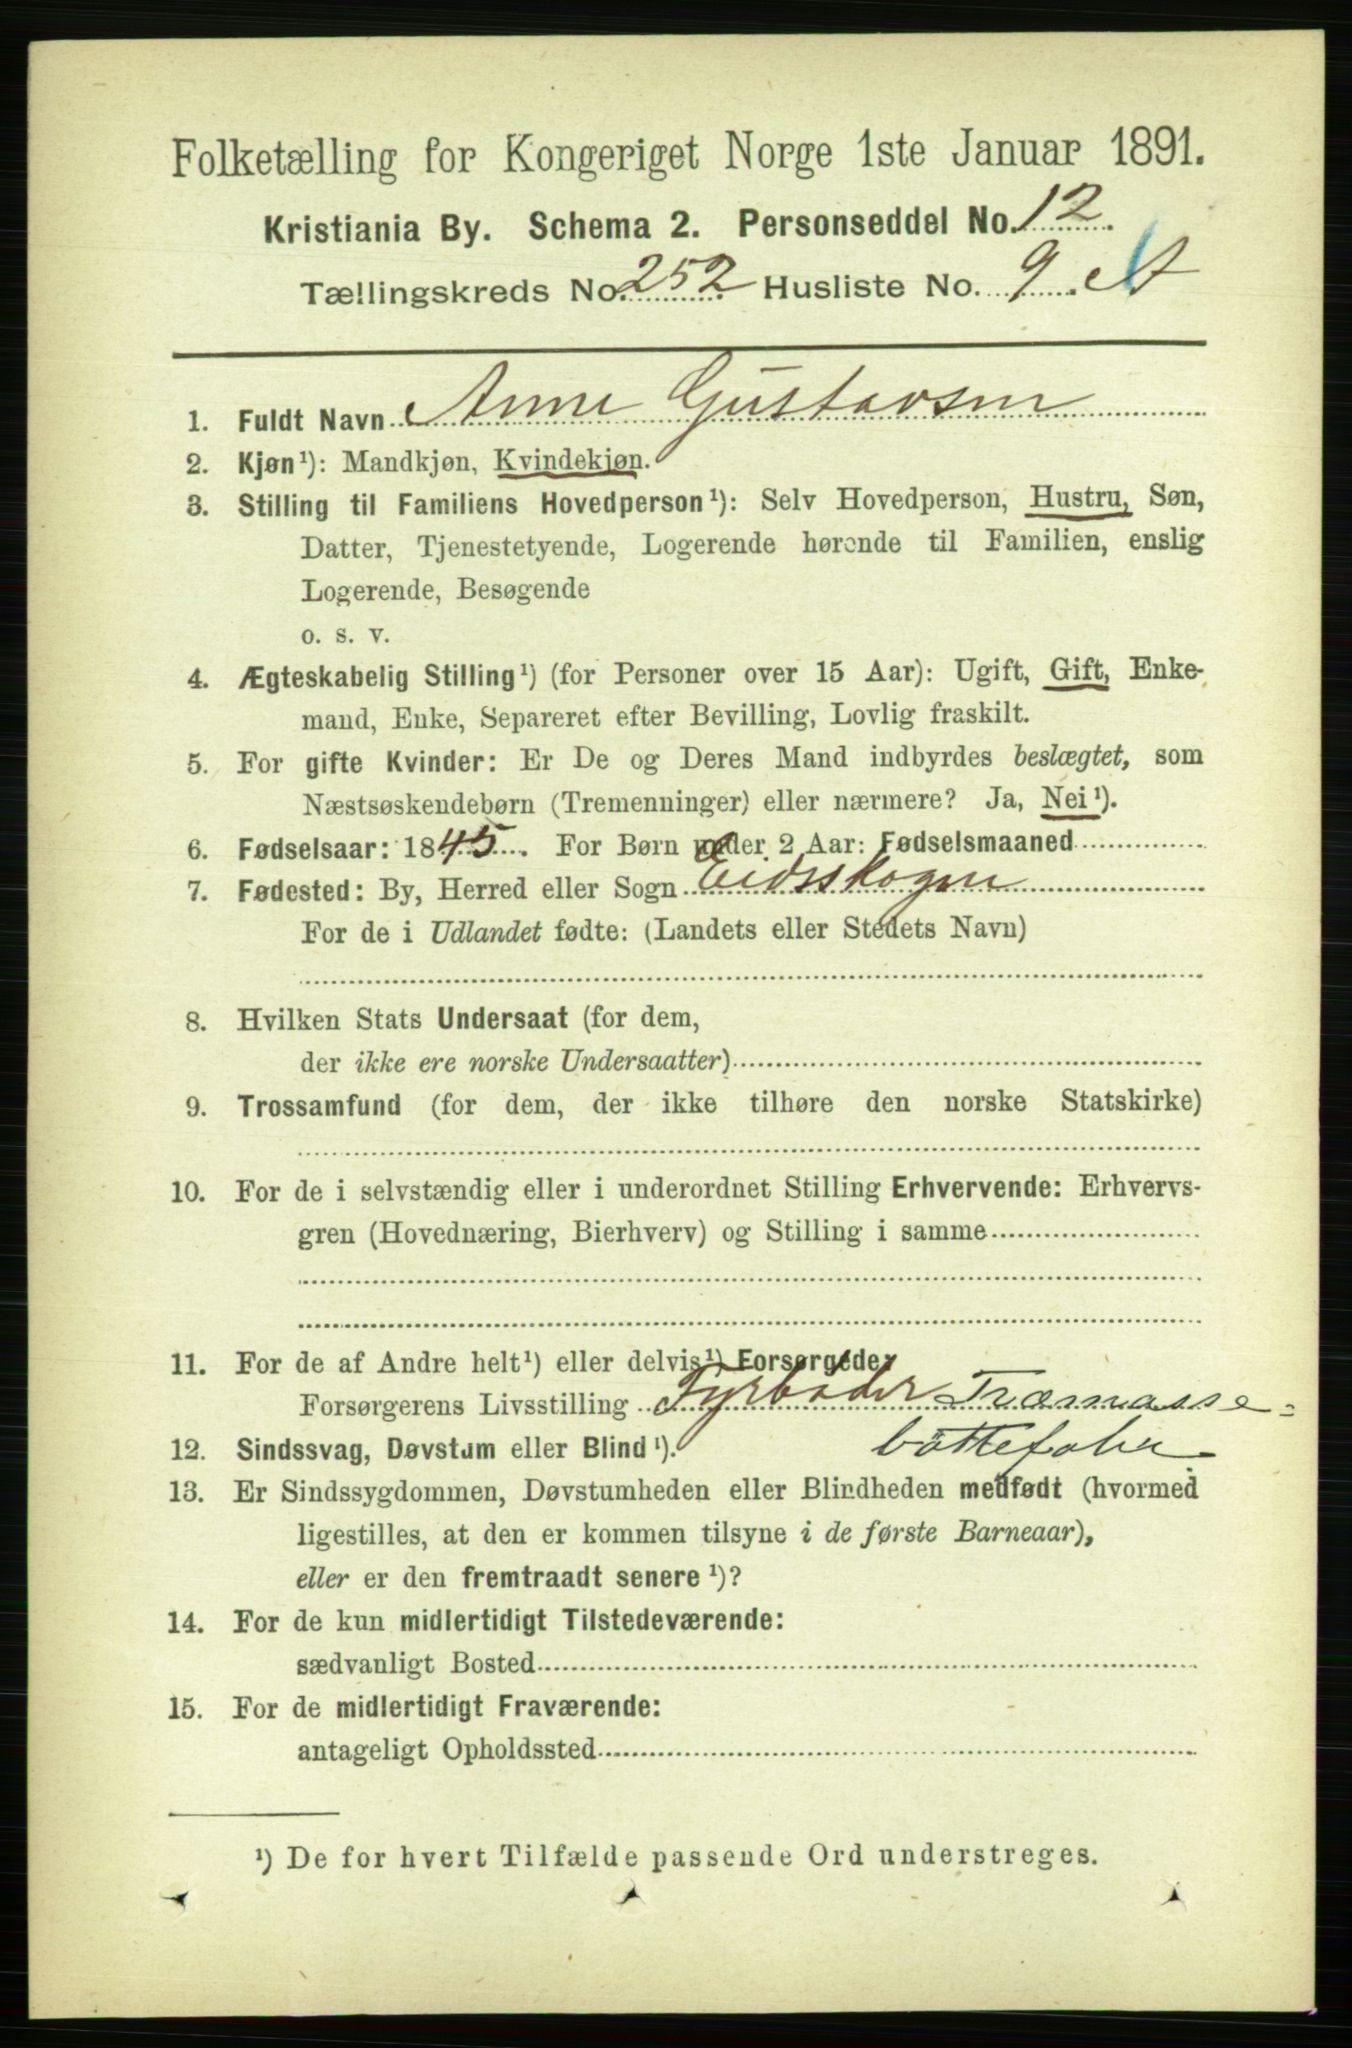 Folketælling for Kongeriget Norge 1ste Januar 1891.
Kristiania By. Schema 2. Personseddel No. 12.
Tællingskreds No. 252 Husliste No. 9. A
1. Fuldt Navn Anne Gustavsen
2. Kjøn¹): Mandkjøn, Kvindekjøn.
3. Stilling til Familiens Hovedperson¹): Selv Hovedperson, Hustru, Søn,
Datter, Tjenestetyende, Logerende hørende til Familien, enslig
Logerende, Besøgende
o. s. v.
4. Ægteskabelig Stilling¹) (for Personer over 15 Aar): Ugift, Gift, Enke-
mand, Enke, Separeret efter Bevilling, Lovlig fraskilt.
5. For gifte Kvinder: Er De og Deres Mand indbyrdes beslægtet, som
Næstsøskendebørn (Tremenninger) eller nærmere? Ja, Nei¹).
6. Fødselsaar: 1845. For Børn under 2 Aar: Fødselsmaaned
7. Fødested: By, Herred eller Sogn Eidsskogen
For de i Udlandet fødte: (Landets eller Stedets Navn)
8. Hvilken Stats Undersaat (for dem,
der ikke ere norske Undersaatter)
9. Trossamfund (for dem, der ikke tilhøre den norske Statskirke)
10. For de i selvstændig eller i underordnet Stilling Erhvervende: Erhvervs-
gren (Hovednæring, Bierhverv) og Stilling i samme
11. For de af Andre helt¹) eller delvis¹) Forsørgede,
Forsørgerens Livsstilling Fyrbøder Træmasse-
12. Sindssvag, Døvstum eller Blind¹). bøttefabr
13. Er Sindssygdommen, Døvstumheden eller Blindheden medfødt (hvormed
ligestilles, at den er kommen tilsyne i de første Barneaar),
eller er den fremtraadt senere¹)?
14. For de kun midlertidigt Tilstedeværende:
sædvanligt Bosted
15. For de midlertidigt Fraværende:
antageligt Opholdssted
¹) De for hvert Tilfælde passende Ord understreges.